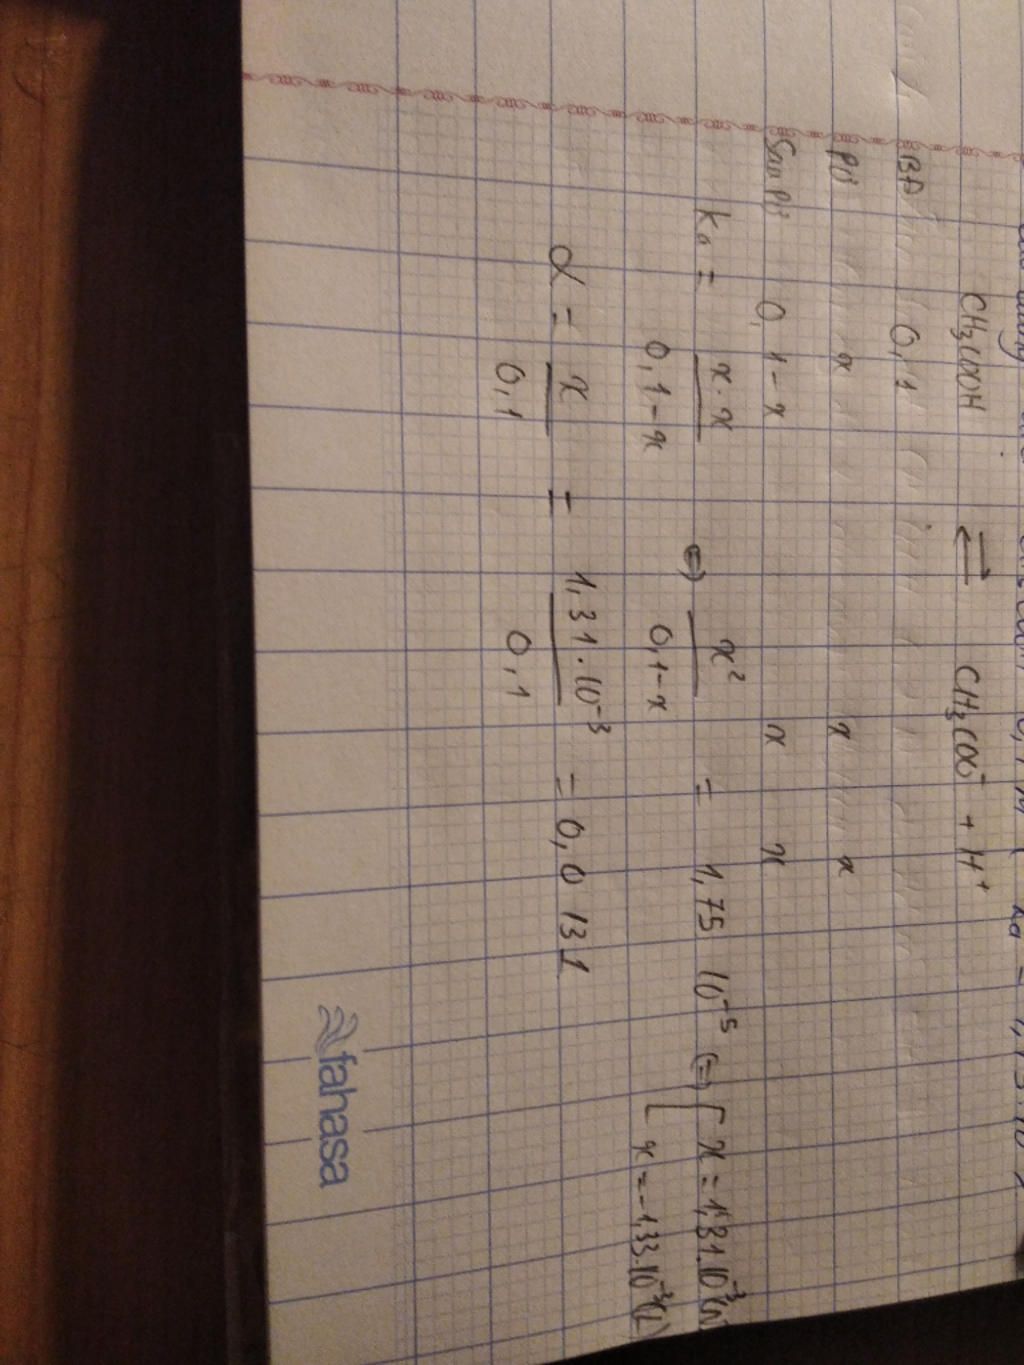 0,1 M ( Ka = 1,75.10⁻⁵
CH₃COOH ⇌ CH₃COO⁻ + H⁺
BĐ 0,1
PƯ x x x
Sau PƯ 0,1-x x x
Ka = x.x / 0,1-x ⇔ x² / 0,1-x = 1,75 10⁻⁵ ⇔ [ x = 1,31.10⁻³(n)
[ x = -1,33.10⁻³(L)
α = x / 0,1 = 1,31.10⁻³ / 0,1 = 0,0131
fahasa